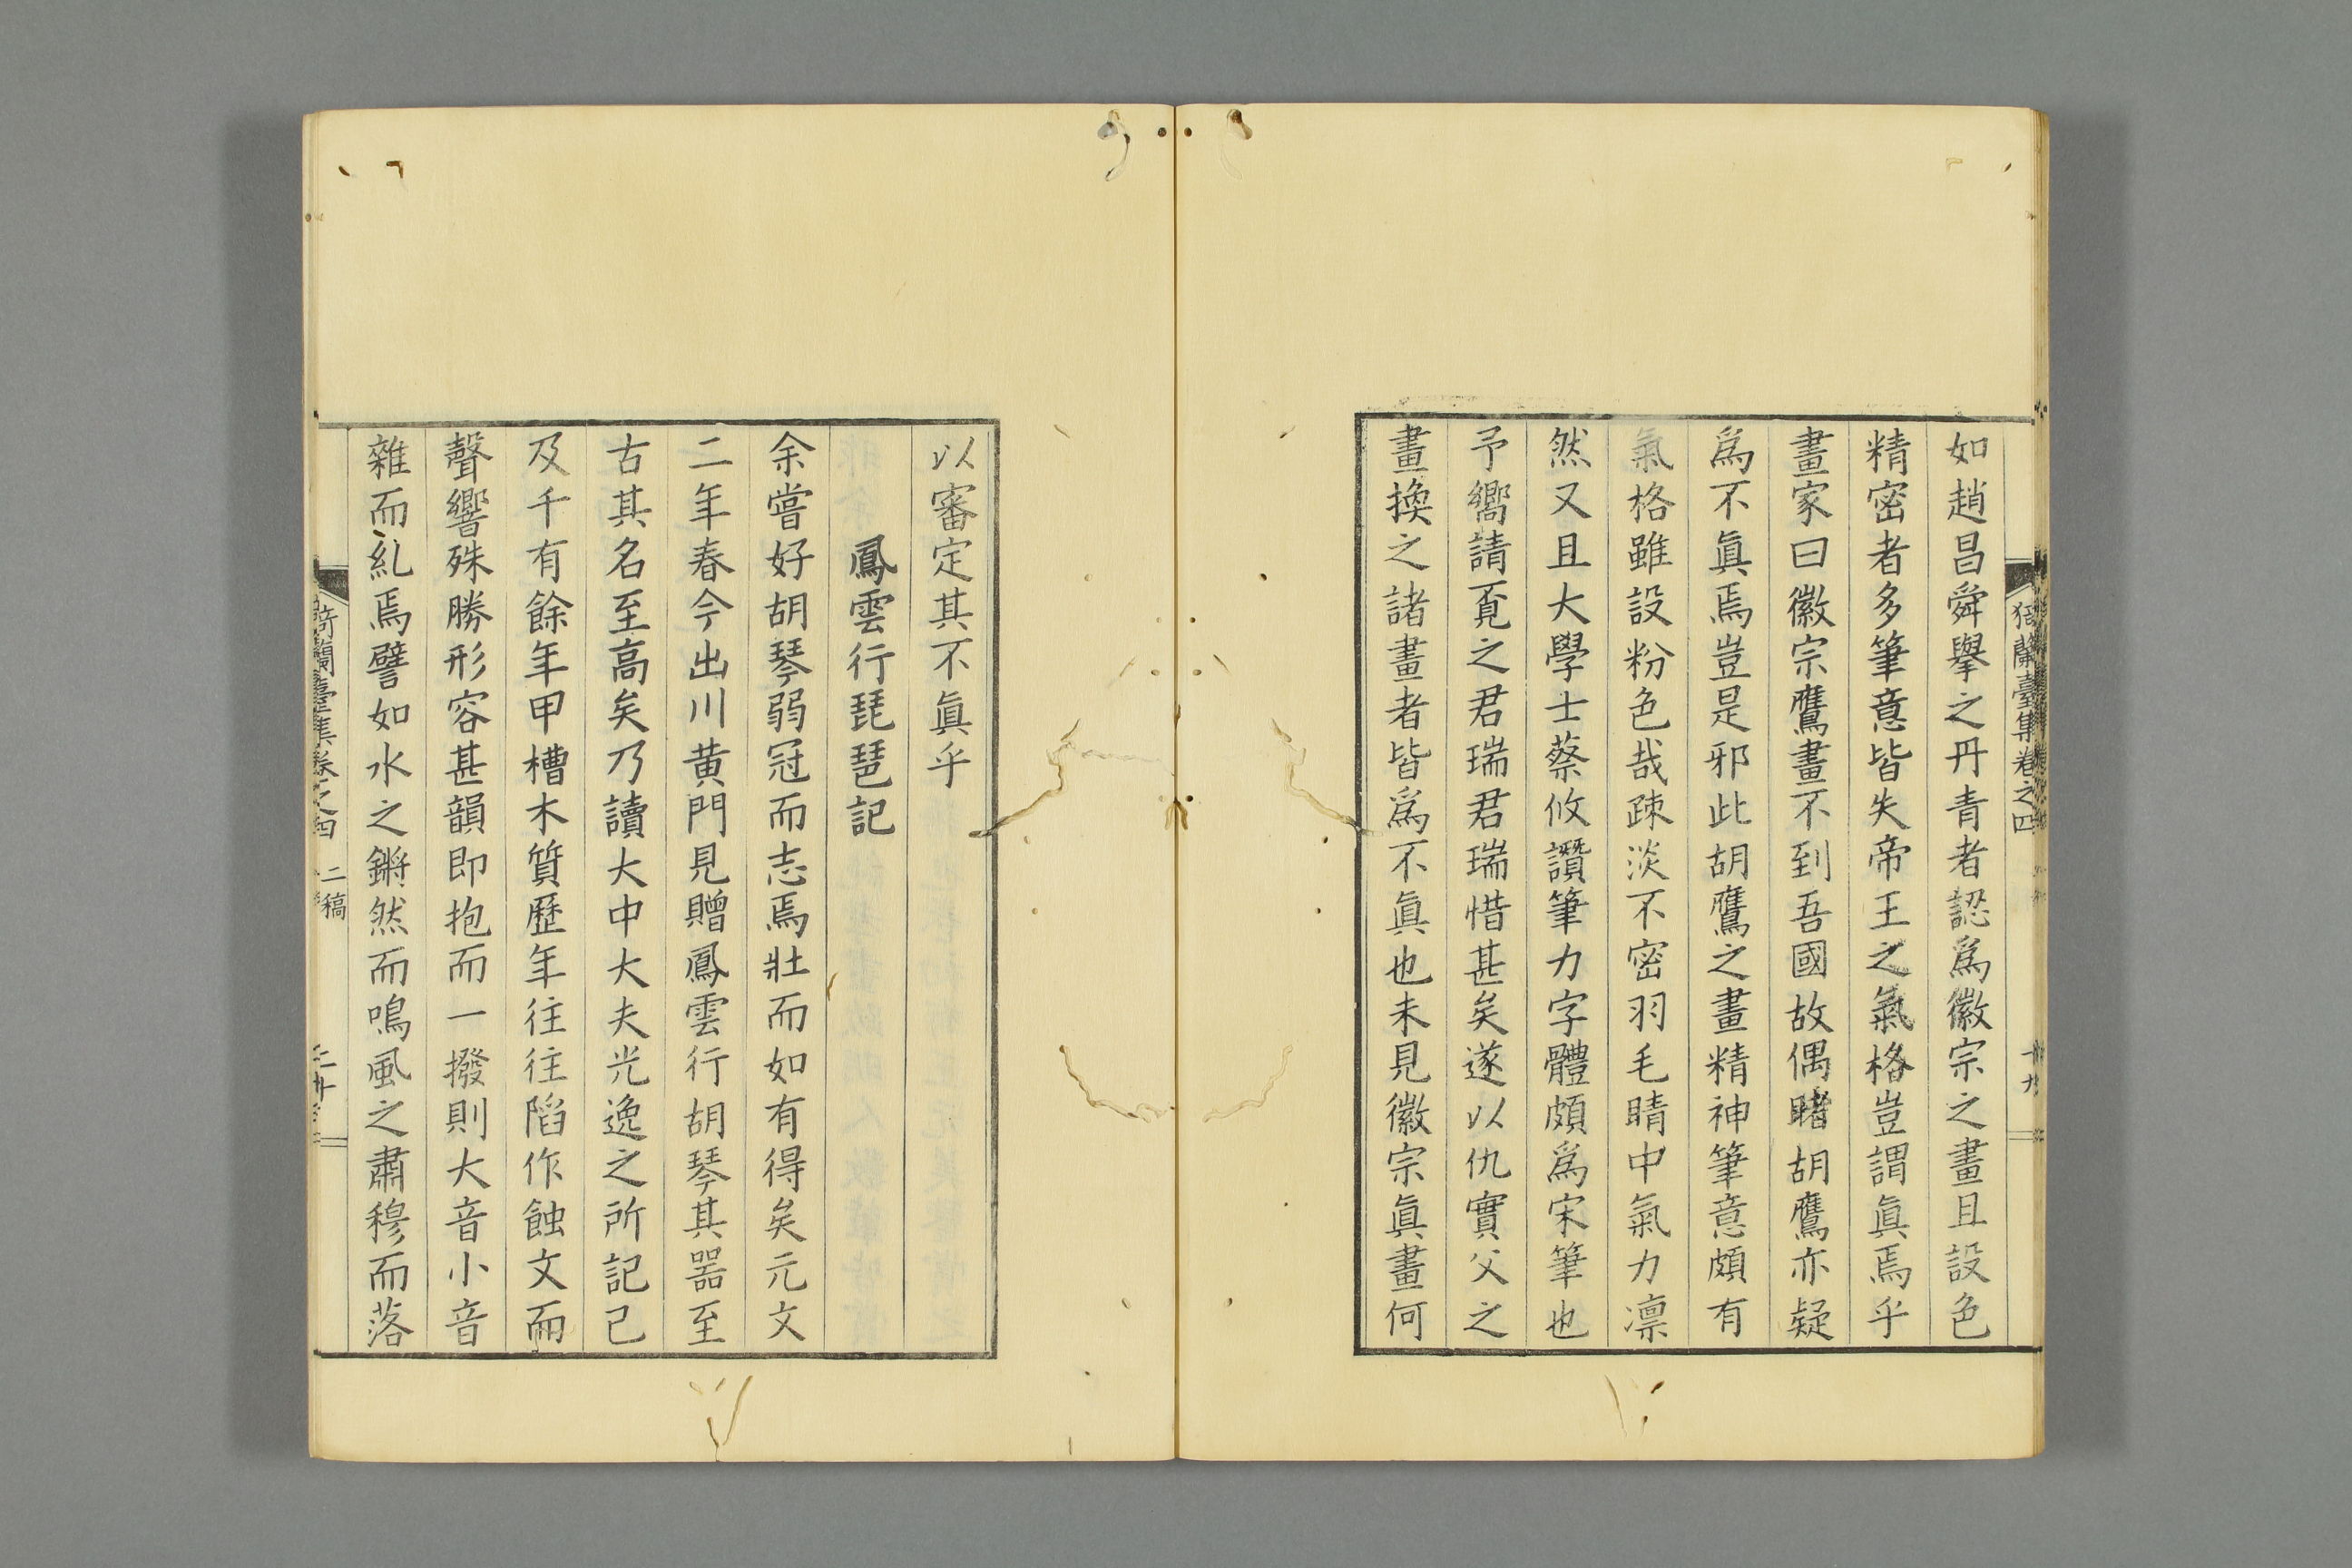 如趙昌舜擧之丹青者認爲徽宗之畫且設色
精密者多筆意皆失帝王之氣格豈謂眞焉乎
畫家曰徽宗鷹畫不到吾國故偶睹胡鷹亦疑
爲不眞焉豈是邪此胡鷹之畫精神筆意頗有
氣格雖設粉色哉疎淡不密羽毛睛中氣力凛
然又且大學士蔡攸讚筆力字體頗爲宋筆也
予嚮請覔之君瑞君瑞惜甚矣遂以仇實父之
畫換之諸畫者皆爲不眞也未見徽宗眞畫何
以審定其不眞乎
鳳雲行琵琶記
余嘗好胡琴弱冠而志焉壯而如有得矣元文
二年春今出川黄門見贈鳳雲行胡琴其噐至
古其名至高矣乃讀大中大夫光逸之所記已
及千有餘年甲槽木質歷年往往陷作蝕文而
聲響殊勝形容甚韻即抱而一撥則大音小音
雜而糺焉譬如水之鏘然而鳴風之肅穆而落
蘭臺集卷之四 二稿